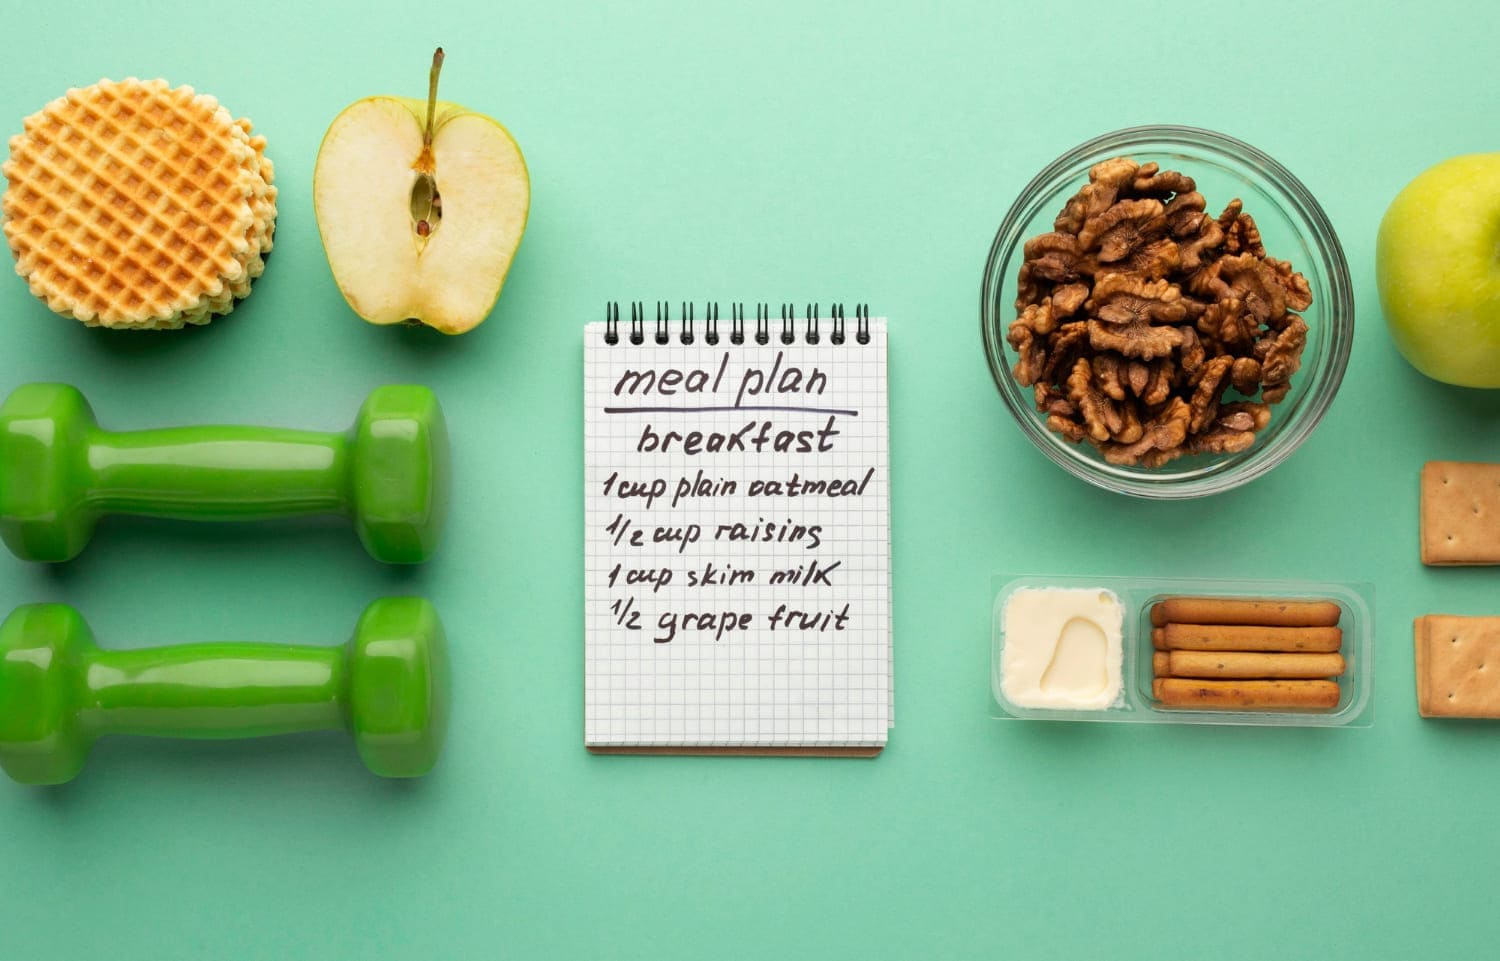 meal plan
breakfast
1 cup plain oatmeal
1/2 cup raisins
1 cup skim milk
1/2 grape fruit